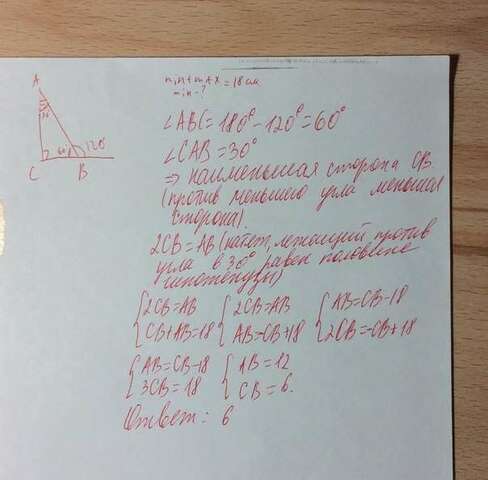 min + max = 18 см
min - ?
A
30
60
120°
C
B
∠ABC = 180° - 120° = 60°
∠CAB = 30°
⇒ наименьшая сторона CB.
(против меньшего угла меньшая
сторона).
2CB = AB (катет, лежащий против
угла в 30° равен половине
гипотенузы)
{2CB = AB {2CB = AB {AB = CB - 18
{CB + AB = 18 {AB = -CB + 18 {2CB = -CB + 18
{AB = CB - 18 {AB = 12
{3CB = 18 {CB = 6.
Ответ: 6